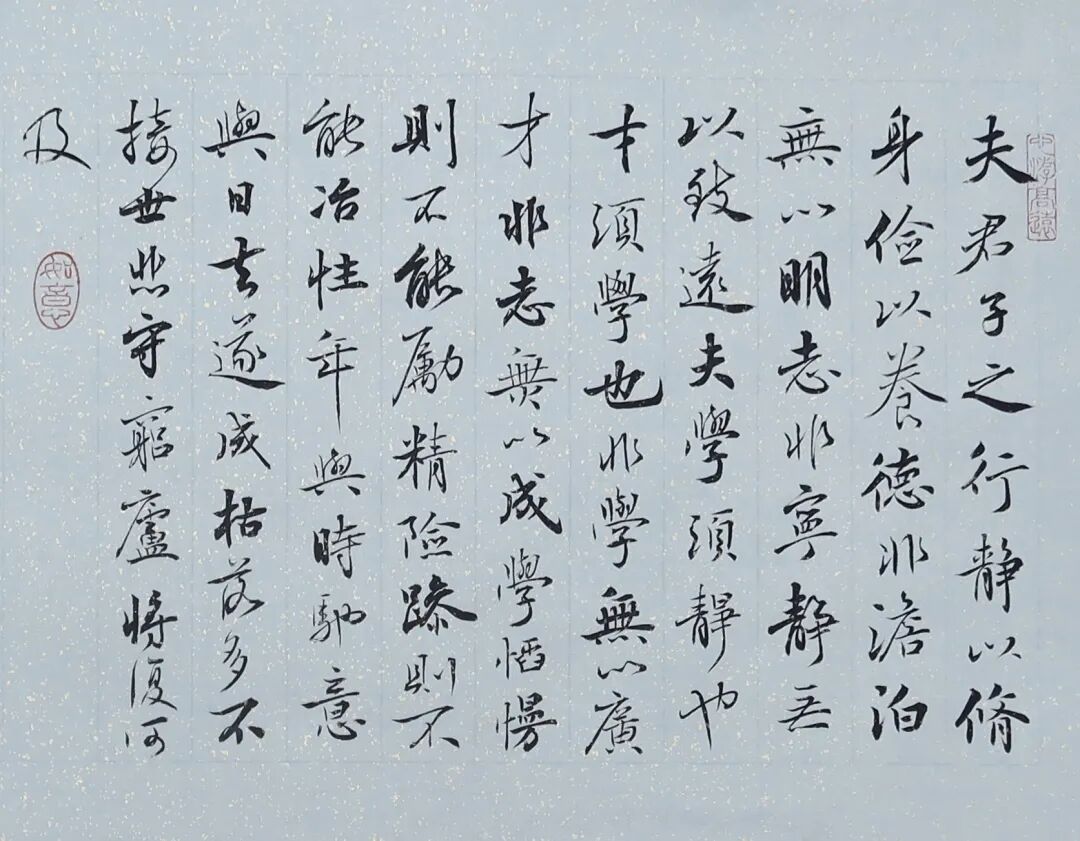 夫君子之行靜以脩
身儉以養德非澹泊
無以明志非寧靜無
以致遠夫學須靜也
才須學也非學無以廣
才非志無以成學慆慢
則不能勵精險躁則不
能冶性年與時馳意
與日去遂成枯落多不
接世悲守窮廬將復何
及
寧靜致遠
如意